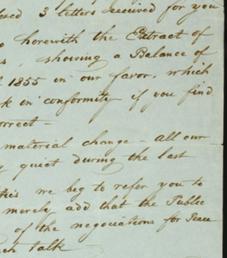 3 letters received for you
herewith the Extract of
, showing a Balance of
1855 in our favor, which
in conformity if you find
correct -
material change - all our
quiet during the last
we beg to refer you to
merely add that the Public
of the negociations for Peace
talk